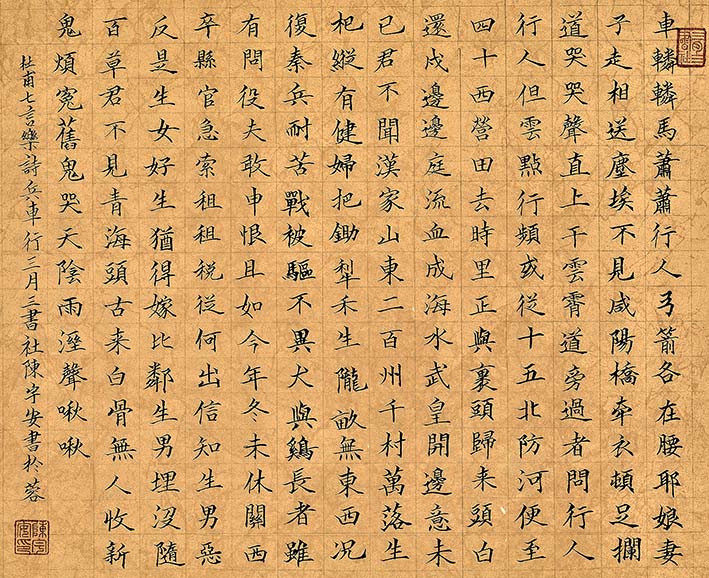 車轔轔馬蕭蕭行人弓箭各在腰耶娘妻
子走相送塵埃不見咸陽橋牽衣頓足攔
道哭哭聲直上干雲霄道旁過者問行人
行人但雲點行頻或從十五北防河便至
四十西營田去時里正與裹頭歸来頭白
還戍邊邊庭流血成海水武皇開邊意未
已君不聞漢家山東二百州千村萬落生
杞縱有健婦把鋤犁禾生隴畝無東西況
復秦兵耐苦戰被驅不異犬與鷄長者雖
有問役夫敢申恨且如今年冬未休關西
卒縣官急索租租税從何出信知生男惡
反是生女好生猶得嫁比鄰生男埋沒隨
百草君不見青海頭古来白骨無人收新
鬼煩冤舊鬼哭天陰雨溼聲啾啾
杜甫七言樂詩兵車行三月三書社陳字安書於蓉